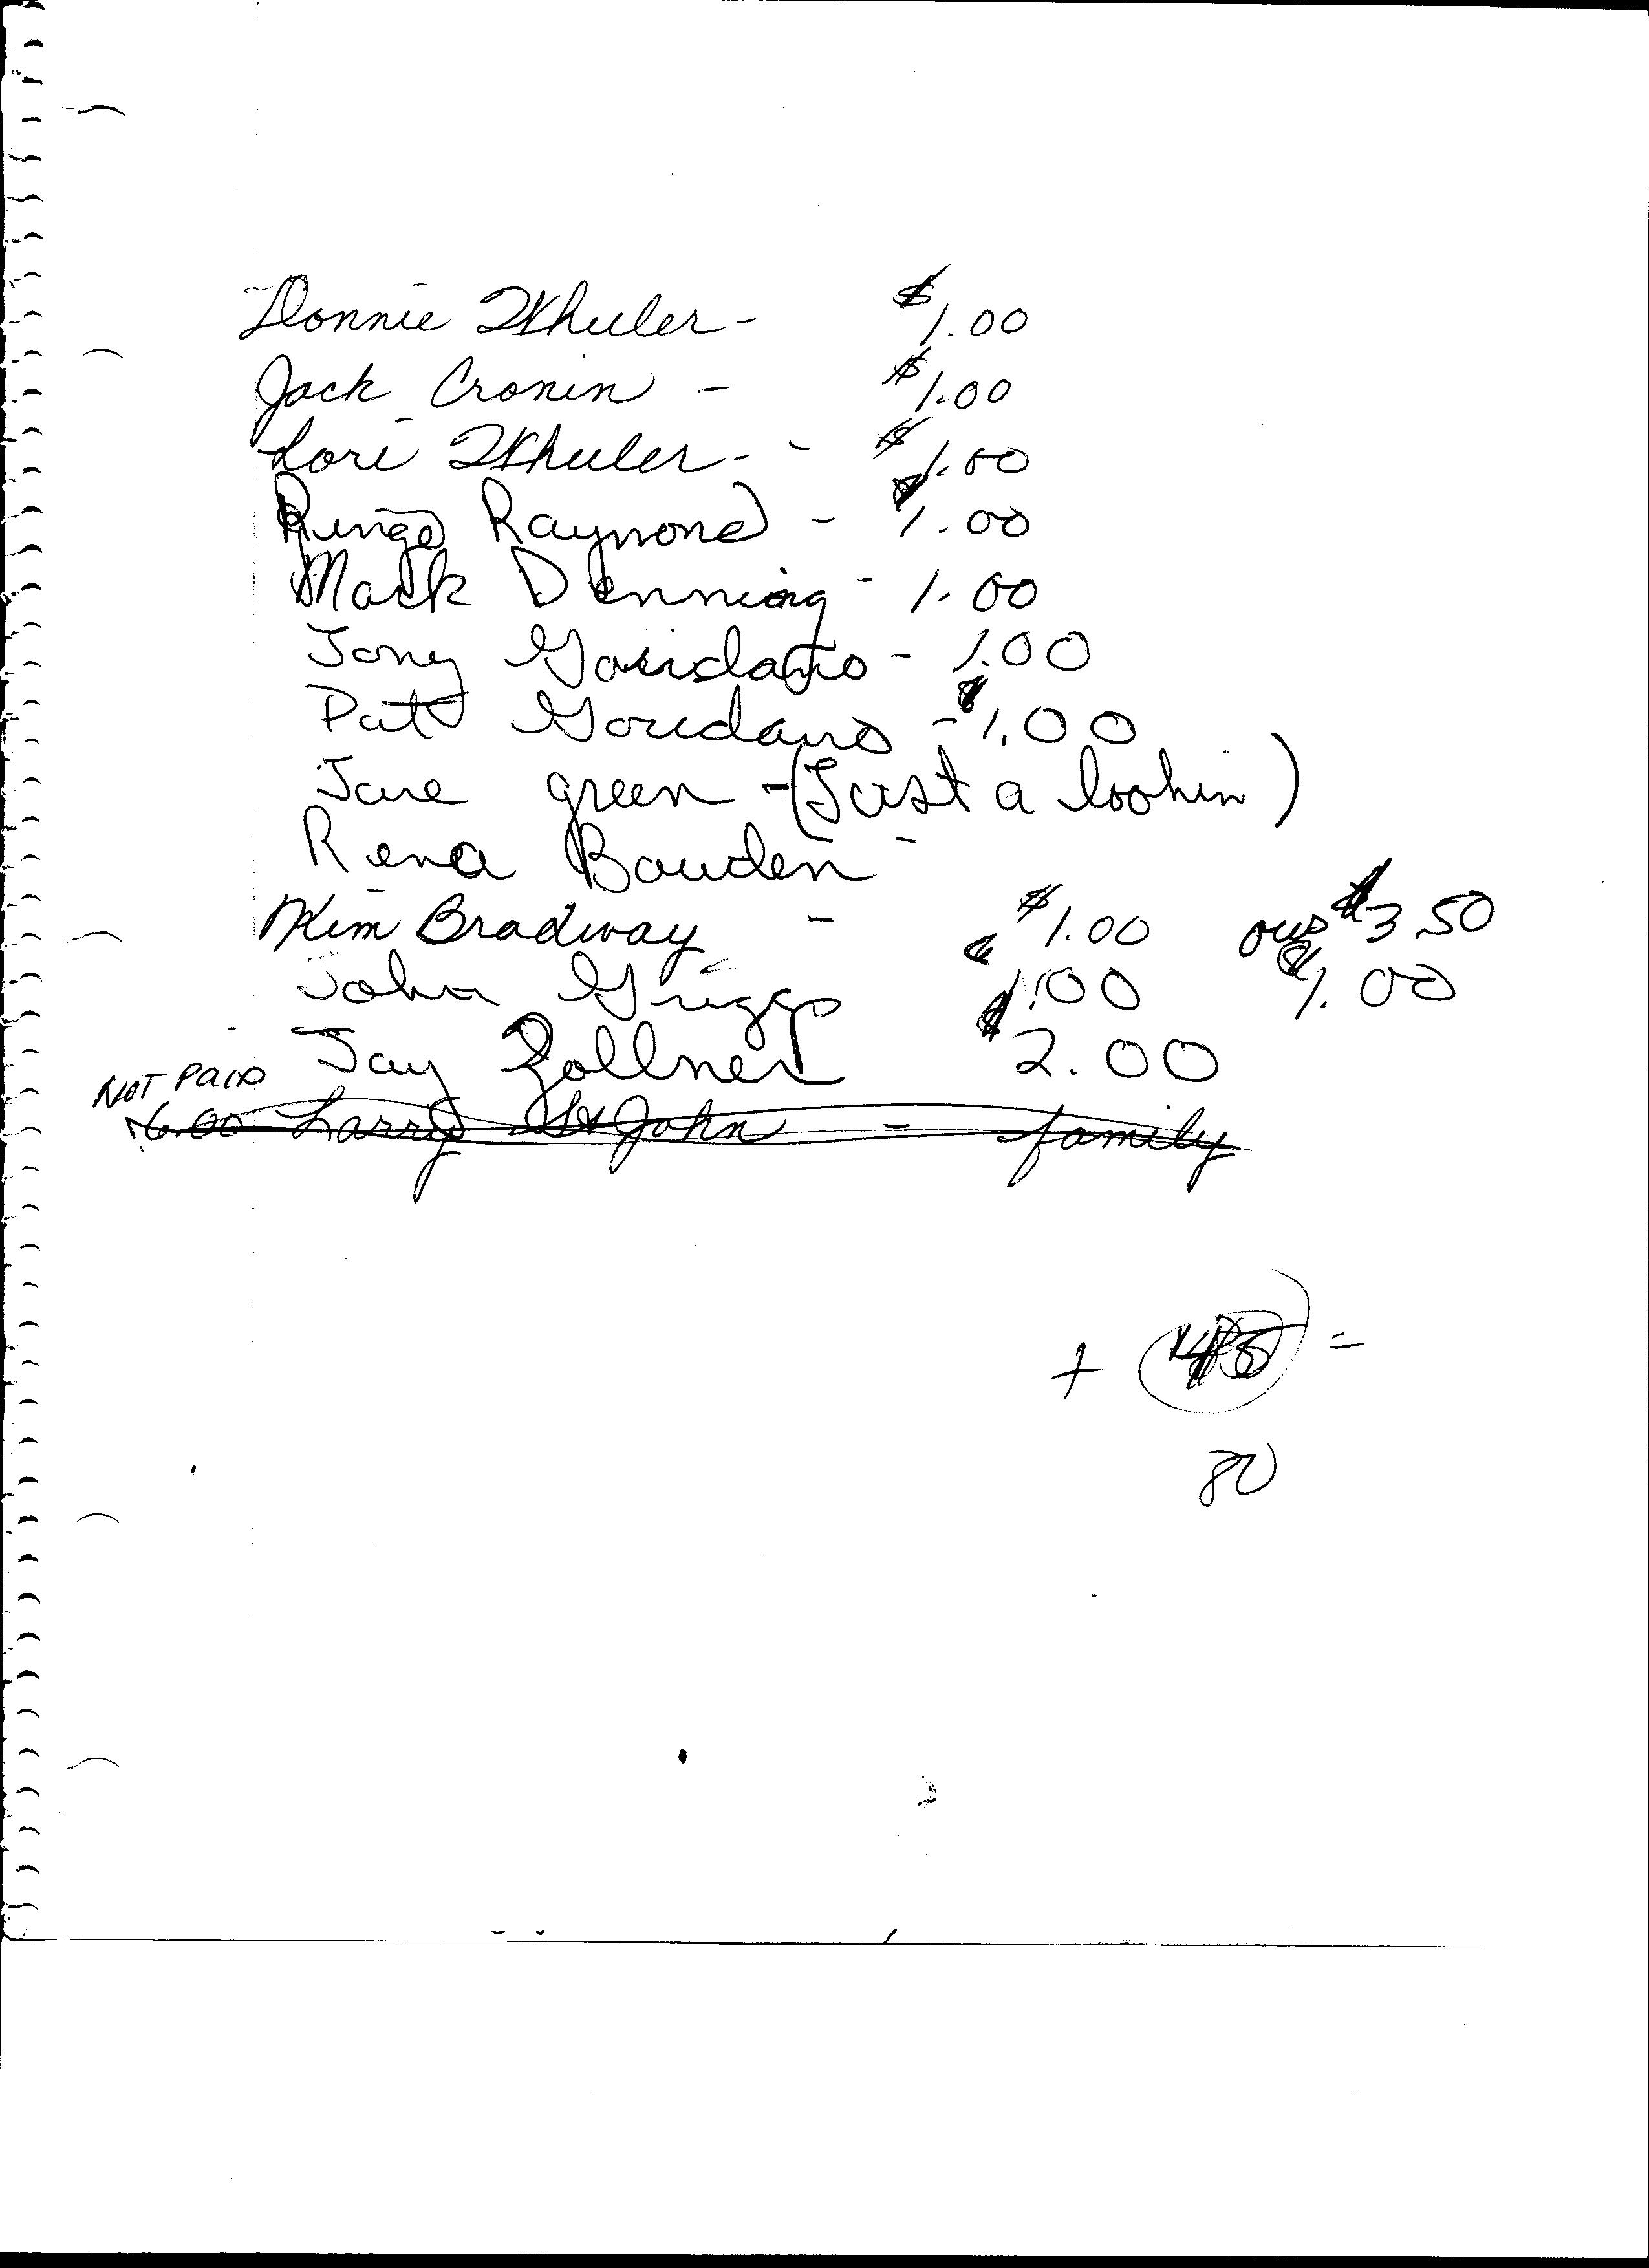 Donnie Wheeler - $1.00
Jack Cronin - $1.00
Lori Wheeler - - $1.00
Ringo Raymond - $1.00
Mark Denning - 1.00
Tony - 1.00
Pat - $1.00
Jane green - (Just a lookin)
Rena -
Kim Bradway - $1.00 $3.50
John Griggs $1.00 $1.00
Jay Zollner $2.00
NOT PAID
6.00 Larry St John - family
+ =
80